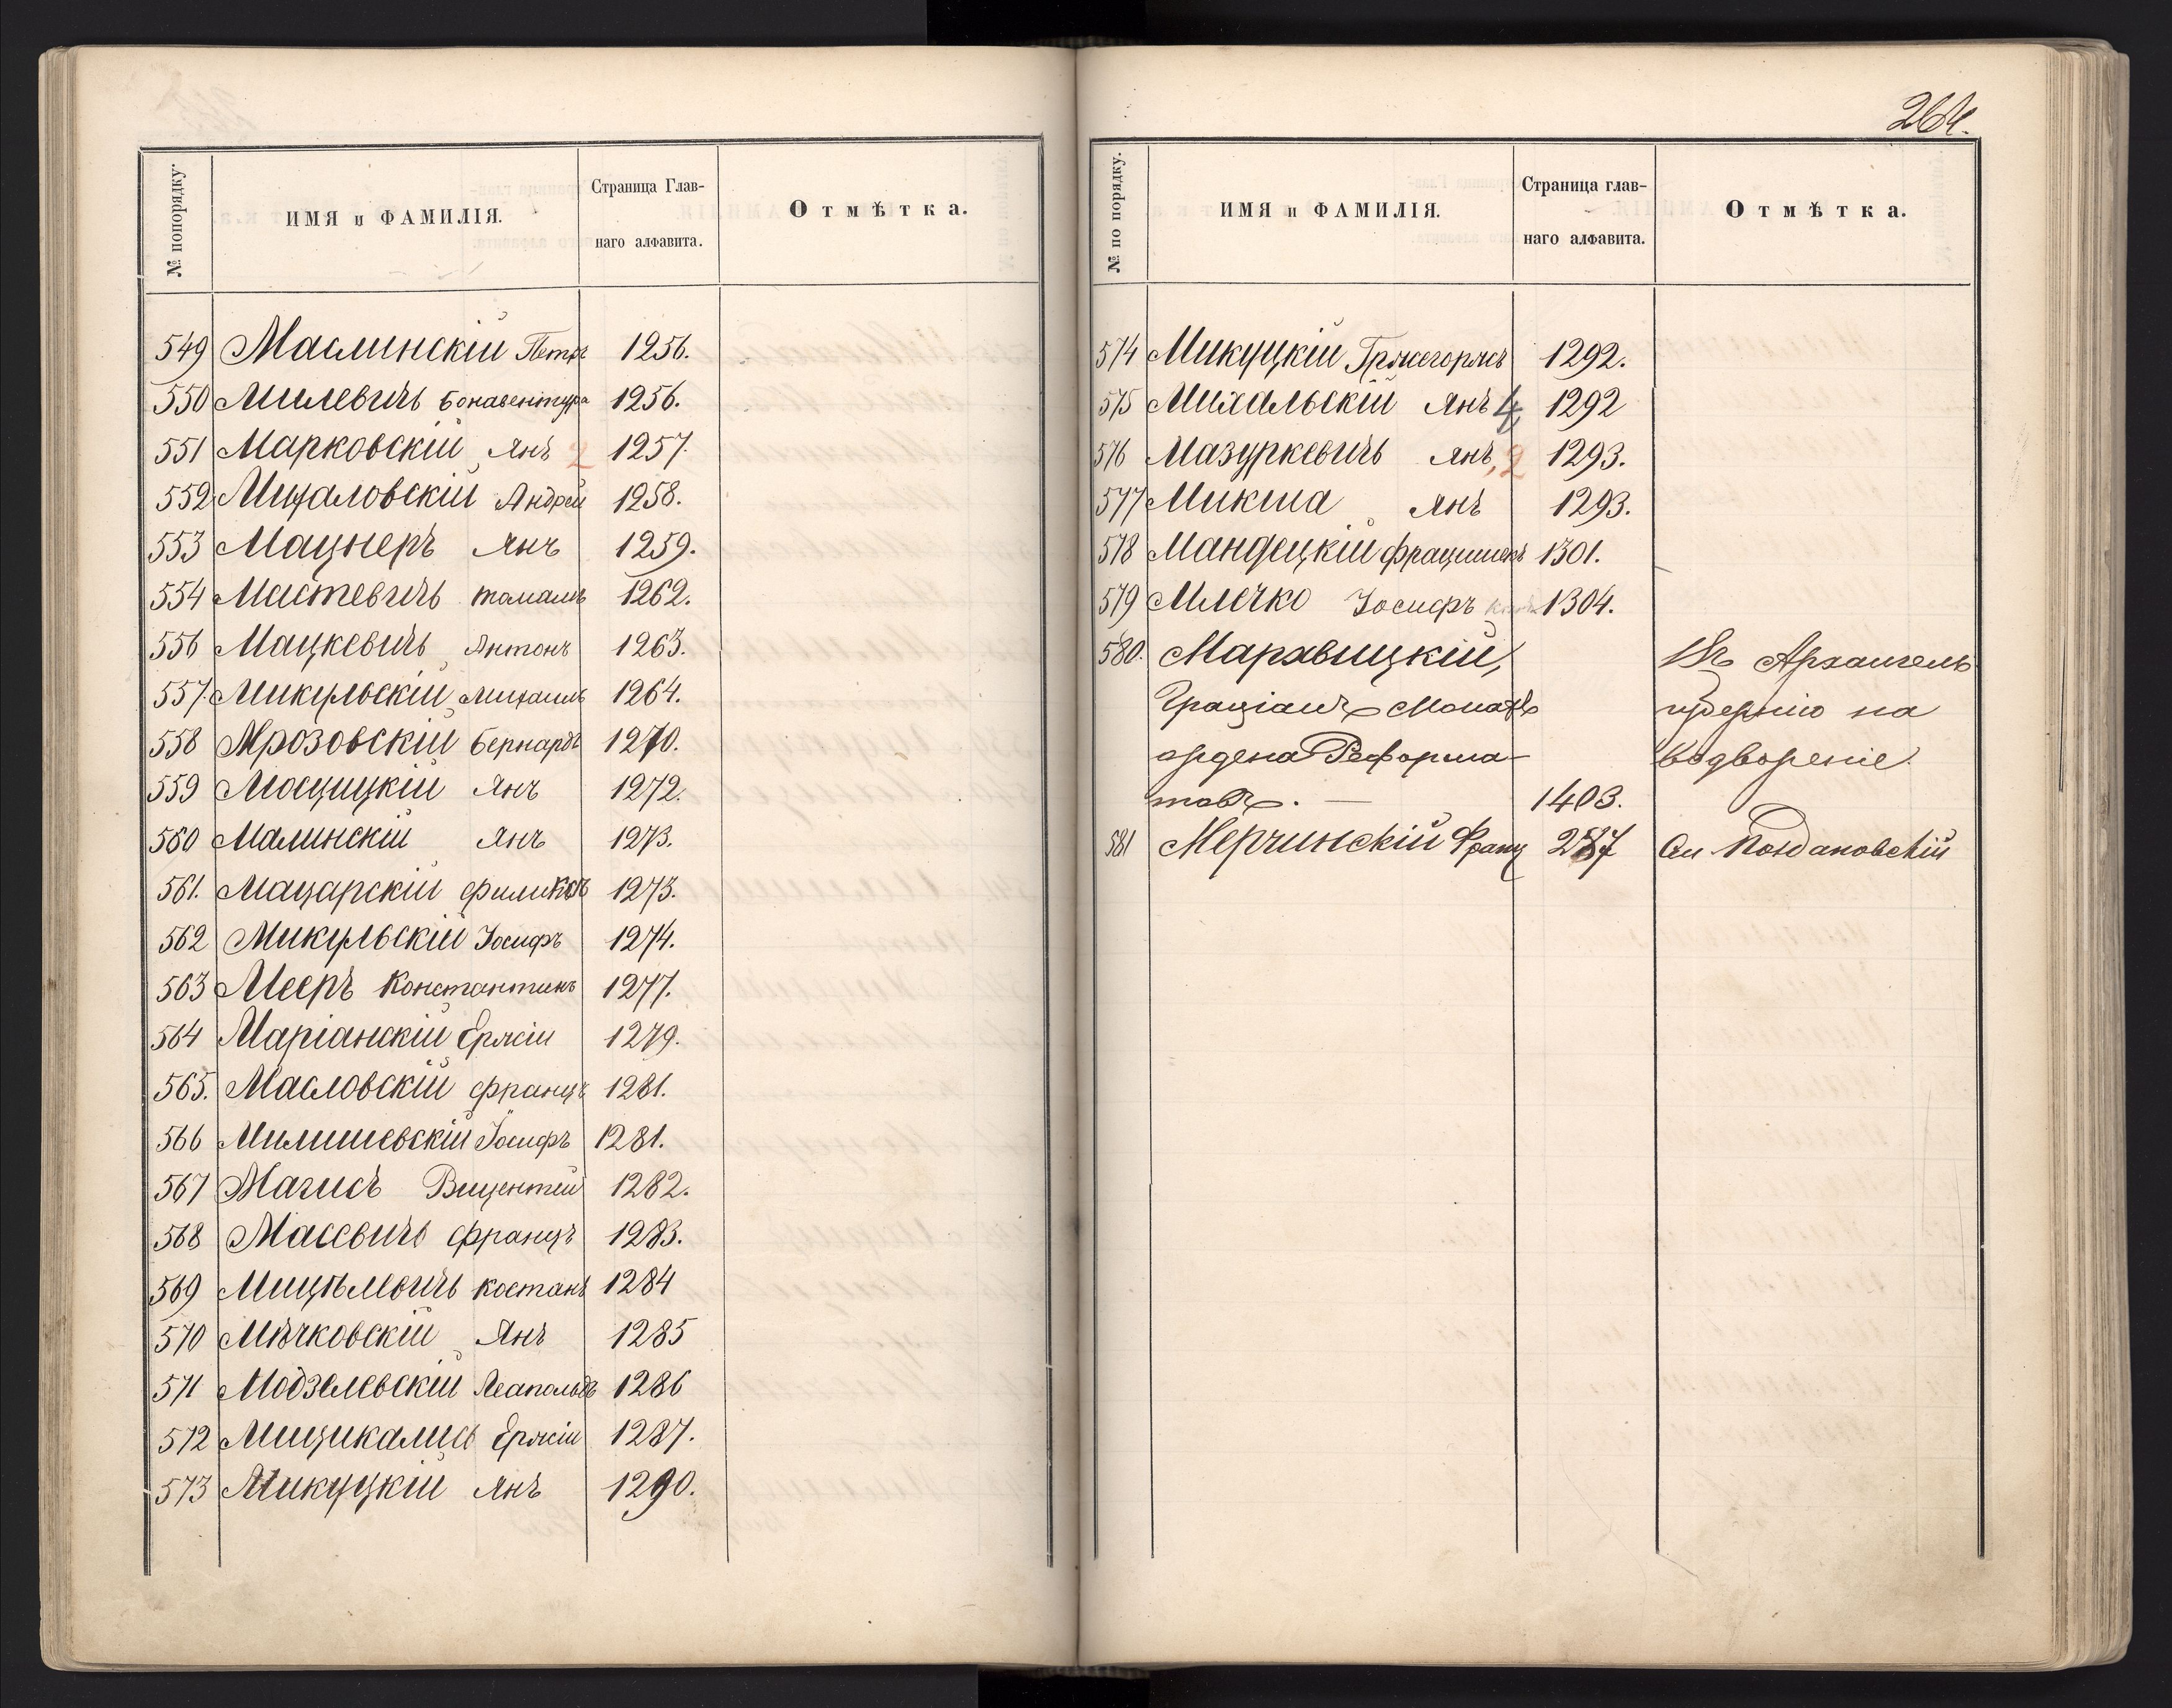 № попорядку.
ИМЯ и ФАМИЛІЯ.
Страница Глав-
наго алфавита.
Отмѣтка.
549 Маслинскій Петръ 1256.
550 Милевичъ Бонавентура 1256.
551 Марковскій Янъ 2 1257.
552 Михаловскій Андрей 1258.
553 Мацнеръ Янъ 1259.
554 Мистевичъ Томашъ 1262.
556 Мацкевичъ Антонъ 1263.
557. Микульскій Михаилъ 1264.
558 Мрозовскій Бернардъ 1270.
559 Мосцицкій Янъ 1272.
560 Малинскій Янъ 1273.
561. Мацарскій Филиксъ 1273.
562 Микульскій Іосифъ 1274.
563 Мееръ Константинъ 1277.
564 Маріанскій Ержій 1279.
565. Масловскій Францъ 1281.
566 Милишевскій Іосифъ 1281.
567 Магисъ Вицентій 1282.
568 Массвичъ Францъ 1283.
569 Костанъ 1284
570 Мѣчковскій Янъ 1285
571 Модзелевскій Леапольдъ 1286
572 Мицикалисъ Ержій 1287.
573 Микуцкій Янъ 1290.
264.
№ по порядку.
ИМЯ и ФАМИЛІЯ.
Страница глав-
наго алфавита.
Отмѣтка.
574 Микуцкій Гржегоржъ 1292.
575 Михальскій Янъ 4 1292
576 Мазуркевичъ Янъ, 2 1293.
577 Микша Янъ 1293.
578 Мандецкій Францишекъ 1301.
579 Млечко Іосифъ 1304.
580. Мархвицкій, Въ Архангель
Граціанъ Монахъ губернію на
ордена Реформа- водвореніе.
товъ. — 1403.
581 Мерчинскій Франц 287 См